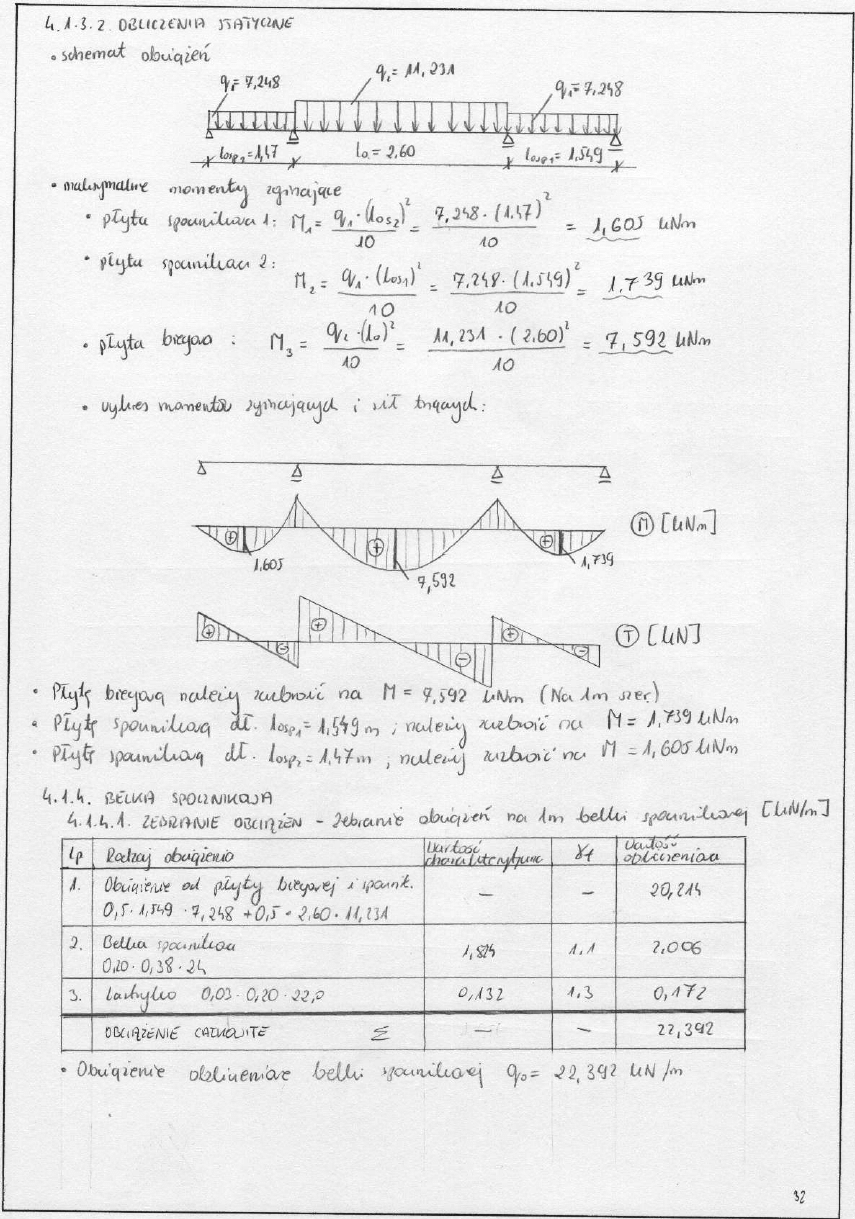 4.1.3.2. OBLICZENIA STATYCZNE
• schemat obciążeń
q₁=7,248
q₂= 11,231
q₁=7,248
losp₂=1,47
lo= 2,60
losp₁= 1,549
• maksymalne momenty zginające
• płyta spocznikowa 1: M₁= q₁·(los₂)²/10 = 7,248·(1.47)²/10 = 1,605 kNm
• płyta spocznikowa 2:
M₂= q₁·(los₁)²/10 = 7,248·(1.549)²/10 = 1,739 kNm
• płyta biegowa : M₃ = q₂·(lo)²/10 = 11,231·(2.60)²/10 = 7,592 kNm
• wykres momentów zginających i sił tnących:
+ + +
1,605
7,592
1,739
M [kNm]
+ - + - + -
T [kN]
• Płytę biegową należy zazbroić na M = 7,592 kNm (Na 1m szer.)
• Płytę spocznikową dł. losp₁= 1,549 m ; należy zazbroić na M= 1,739 kNm
• Płytę spocznikową dł. losp₂= 1,47m ; należy zazbroić na M = 1,605 kNm
4.1.4. BELKA SPOCZNIKOWA
4.1.4.1. ZEBRANIE OBCIĄŻEŃ - Zebranie obciążeń na 1m belki spocznikowej [kN/m]
Lp Rodzaj obciążenia Wartość charakterystyczna γf Wartość obliczeniowa
1. Obciążenie od płyty biegowej i spocznik. - - 20,214
0,5·1,549·7,248 +0,5·2,60·11,231
2. Belka spocznikowa 1,824 1.1 2,006
0,20·0,38·24
3. Lastryko 0,03·0,20·22,0 0,132 1.3 0,172
OBCIĄŻENIE CAŁKOWITE Σ - - 22,392
• Obciążenie obliczeniowe belki spocznikowej q₀= 22,392 kN/m
32